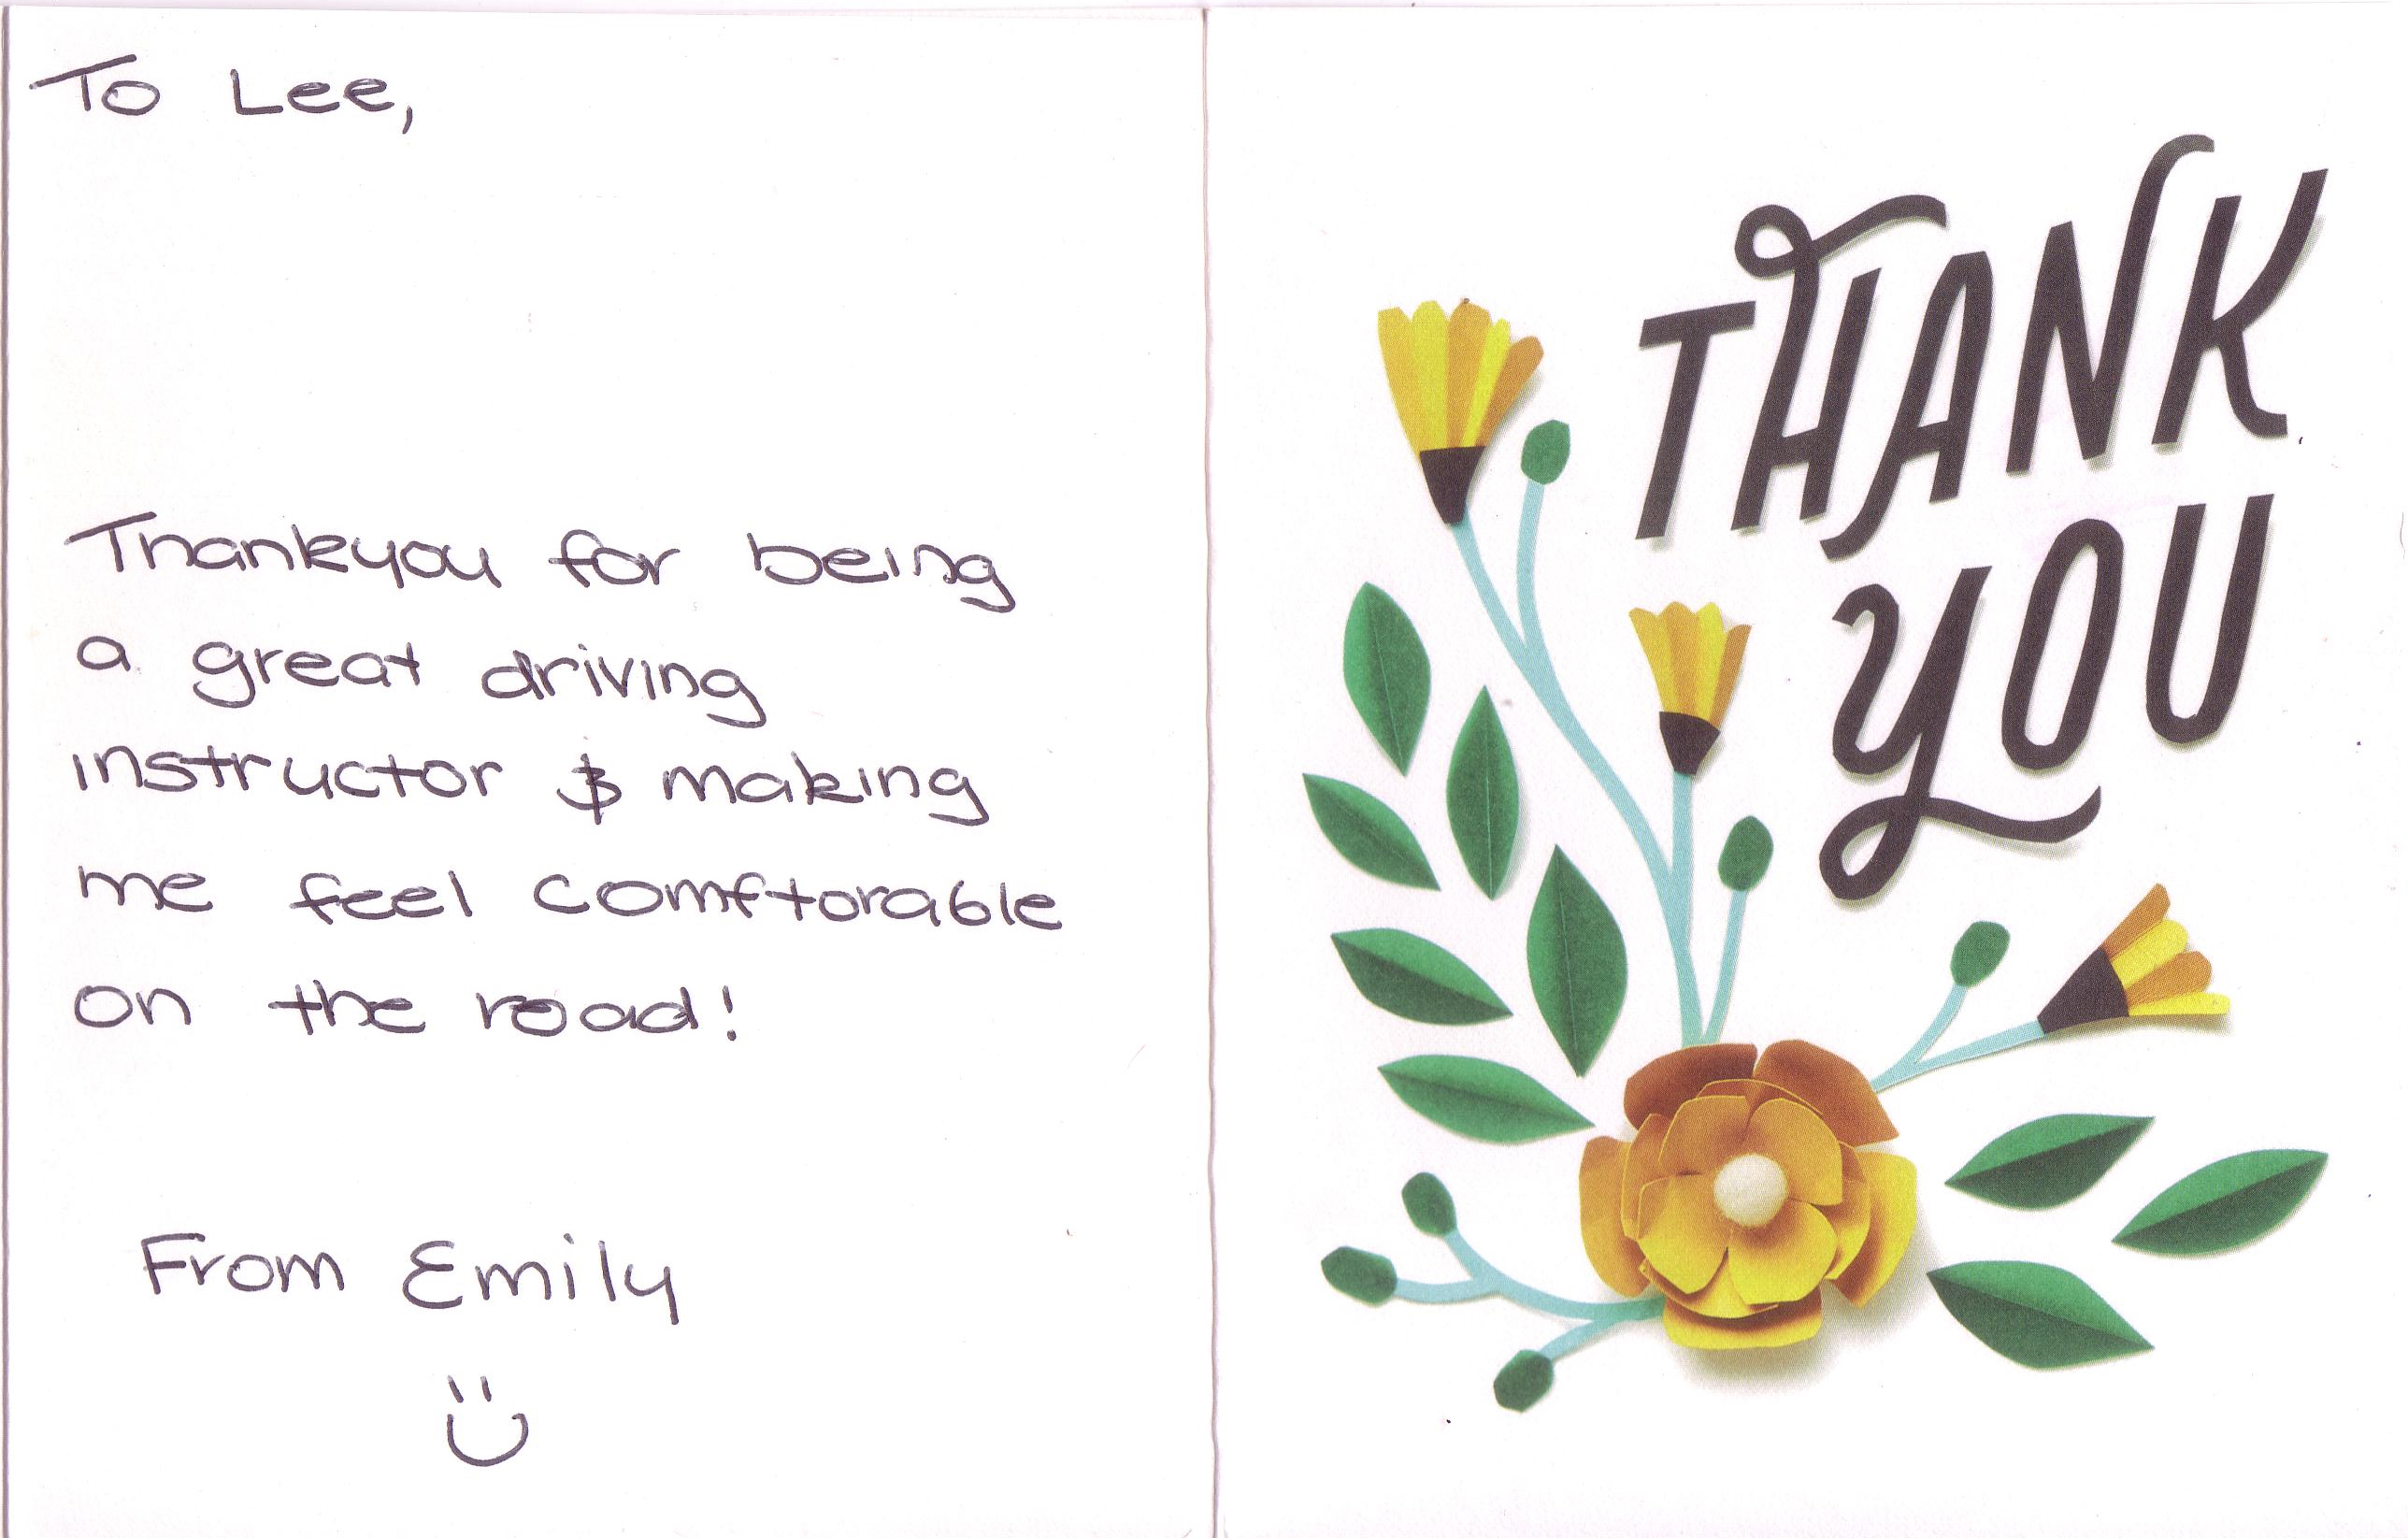 To Lee,
Thankyou for being
a great driving
instructor & making
me feel comftorable
on the road!
From Emily
THANK
YOU